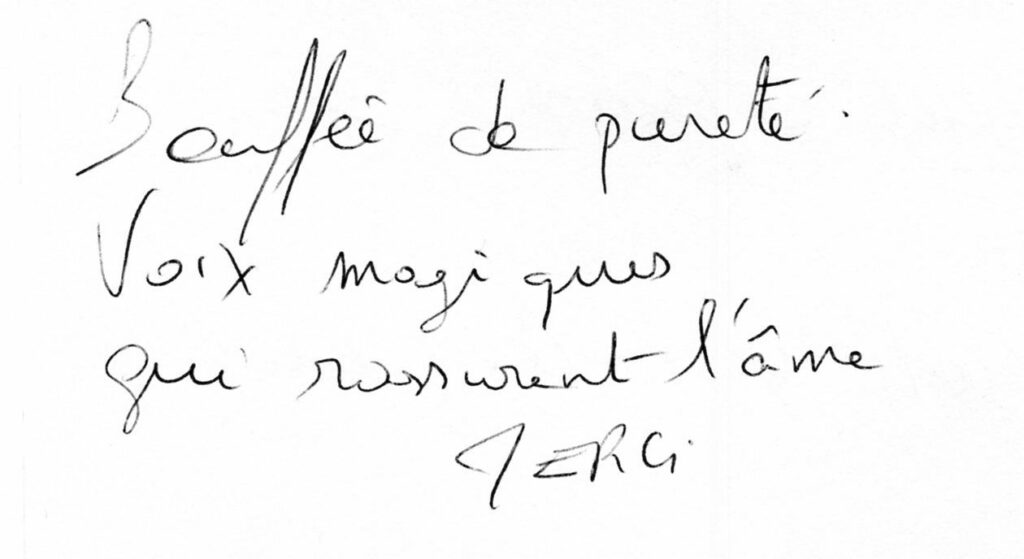 Bouffée de pureté.
Voix magiques
qui rassurent l'âme
MERCi